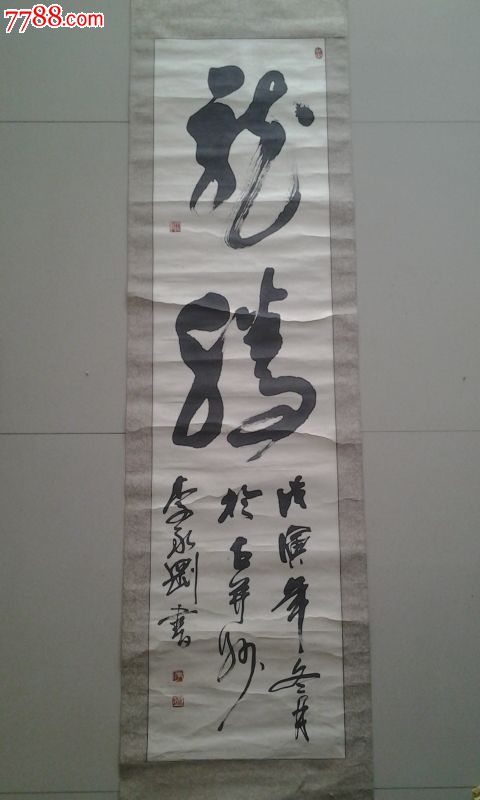 7788.com
龍
騰
戊寅年冬月
於古并州
李永剛書